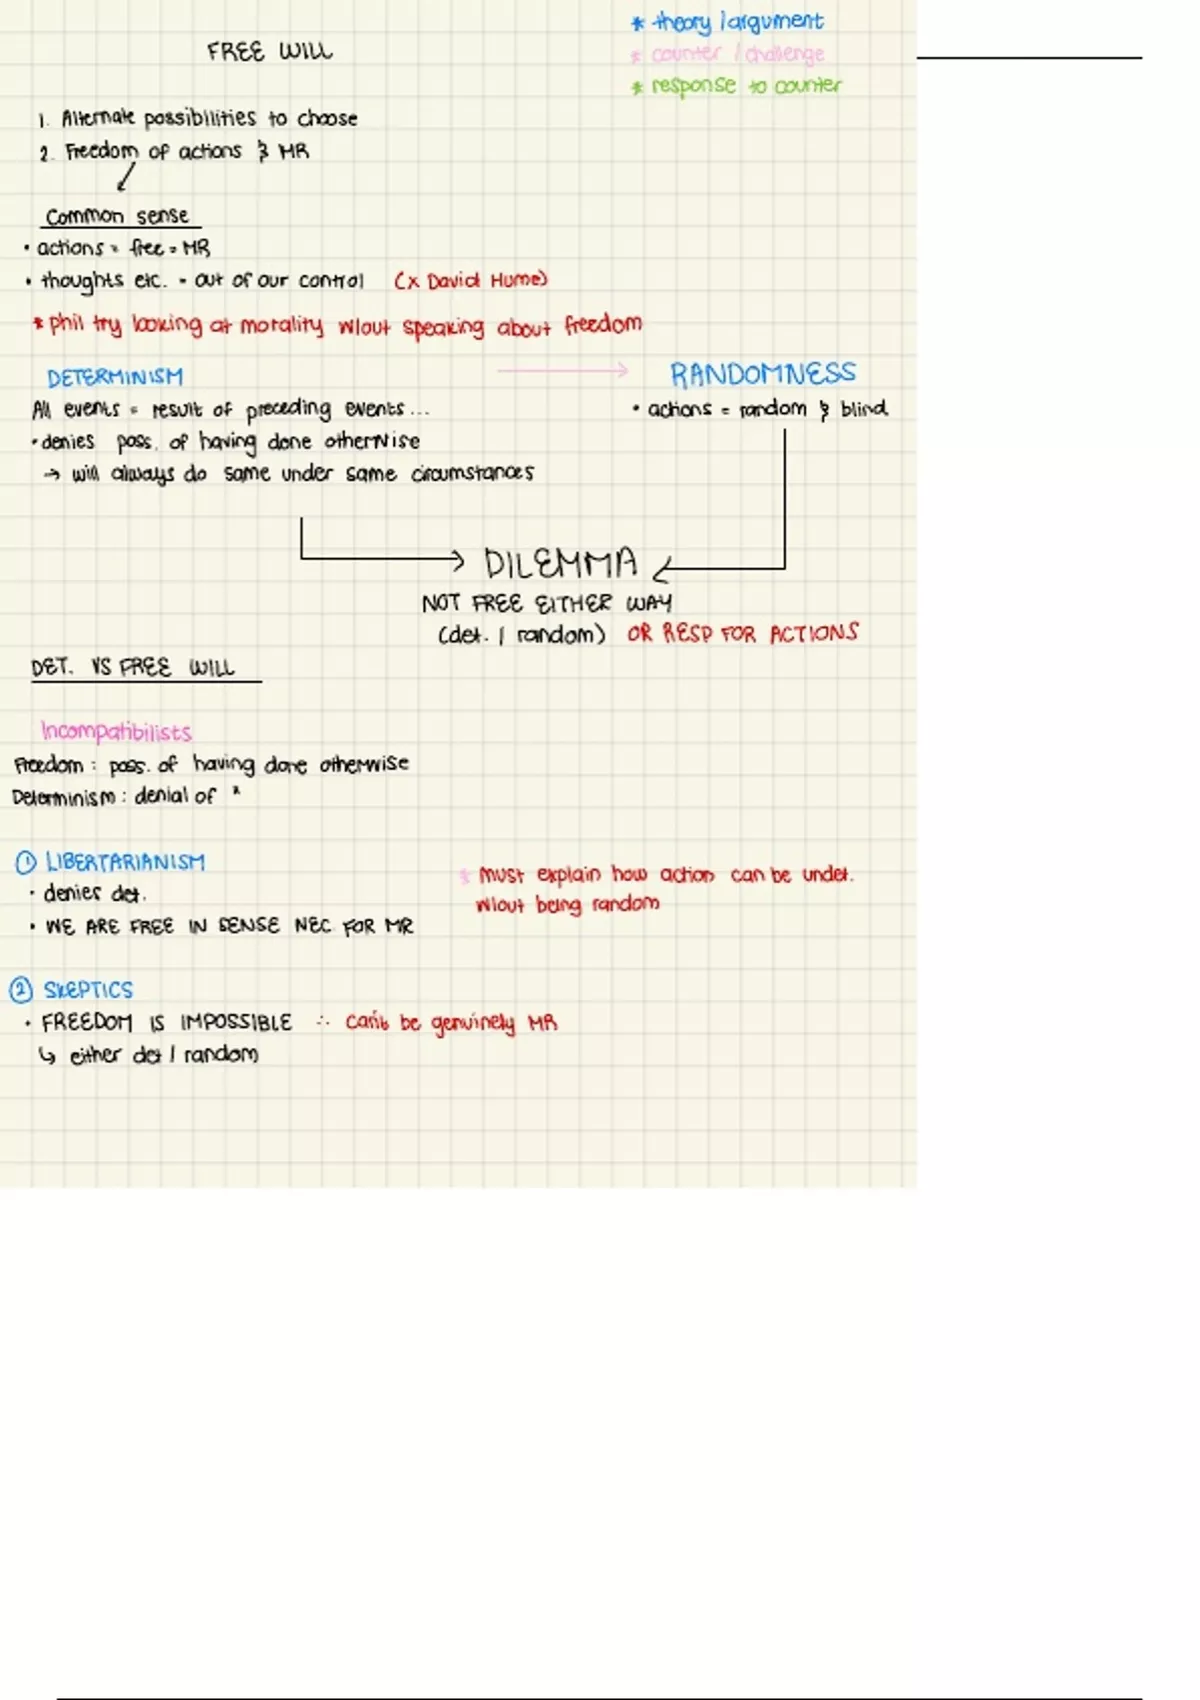 FREE WILL
* theory / argument
* counter / challenge
* response to counter
1. Alternate possibilities to choose
2. Freedom of actions & MR
Common sense
• actions = free = MR
• thoughts etc. = out of our control (x David Hume)
* phil try looking at morality w/out speaking about freedom
DETERMINISM
All events = result of preceding events...
• denies poss. of having done otherwise
→ will always do same under same circumstances
RANDOMNESS
• actions = random & blind
DILEMMA
NOT FREE EITHER WAY
(det. / random) OR RESP FOR ACTIONS
DET. VS FREE WILL
Incompatibilists
Freedom: poss. of having done otherwise
Determinism: denial of "
① LIBERTARIANISM
• denies det.
• WE ARE FREE IN SENSE NEC FOR MR
* Must explain how action can be undet.
w/out being random
② SKEPTICS
• FREEDOM IS IMPOSSIBLE ∴ can't be genuinely MR
↳ either det / random